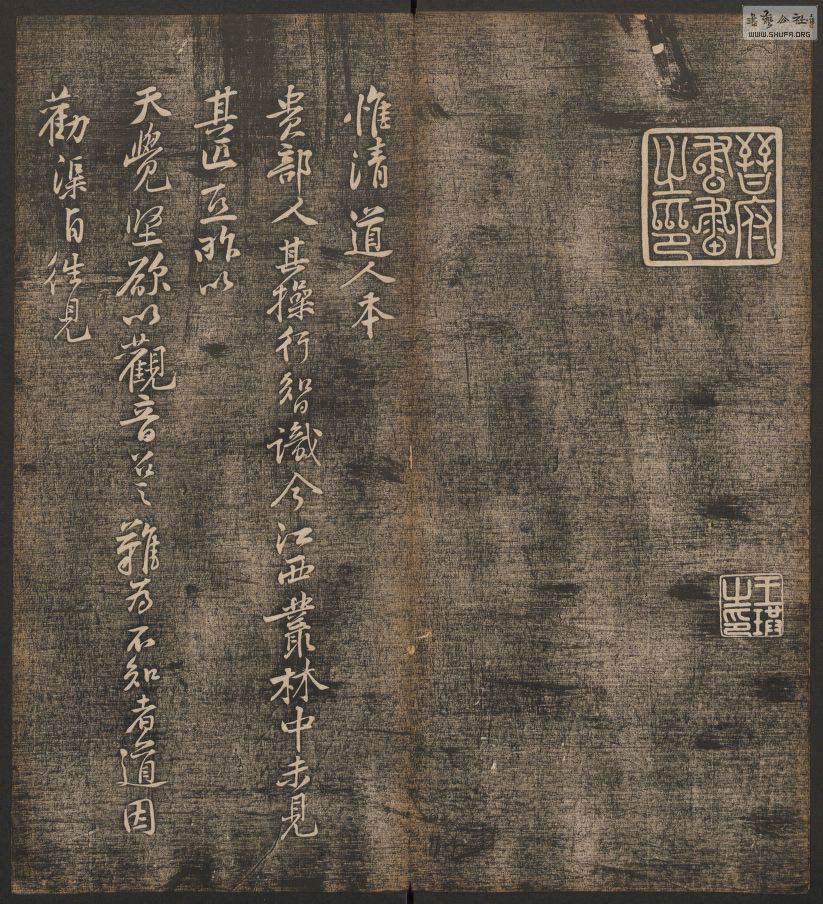 晉府書畫之印
惟清道人本
貴部人其操行智識今江西叢林中未見
其匹亞昨以
天覺堅欲以觀音召之難為不知者道因
勸渠自往見
WWW.SHUFA.ORG